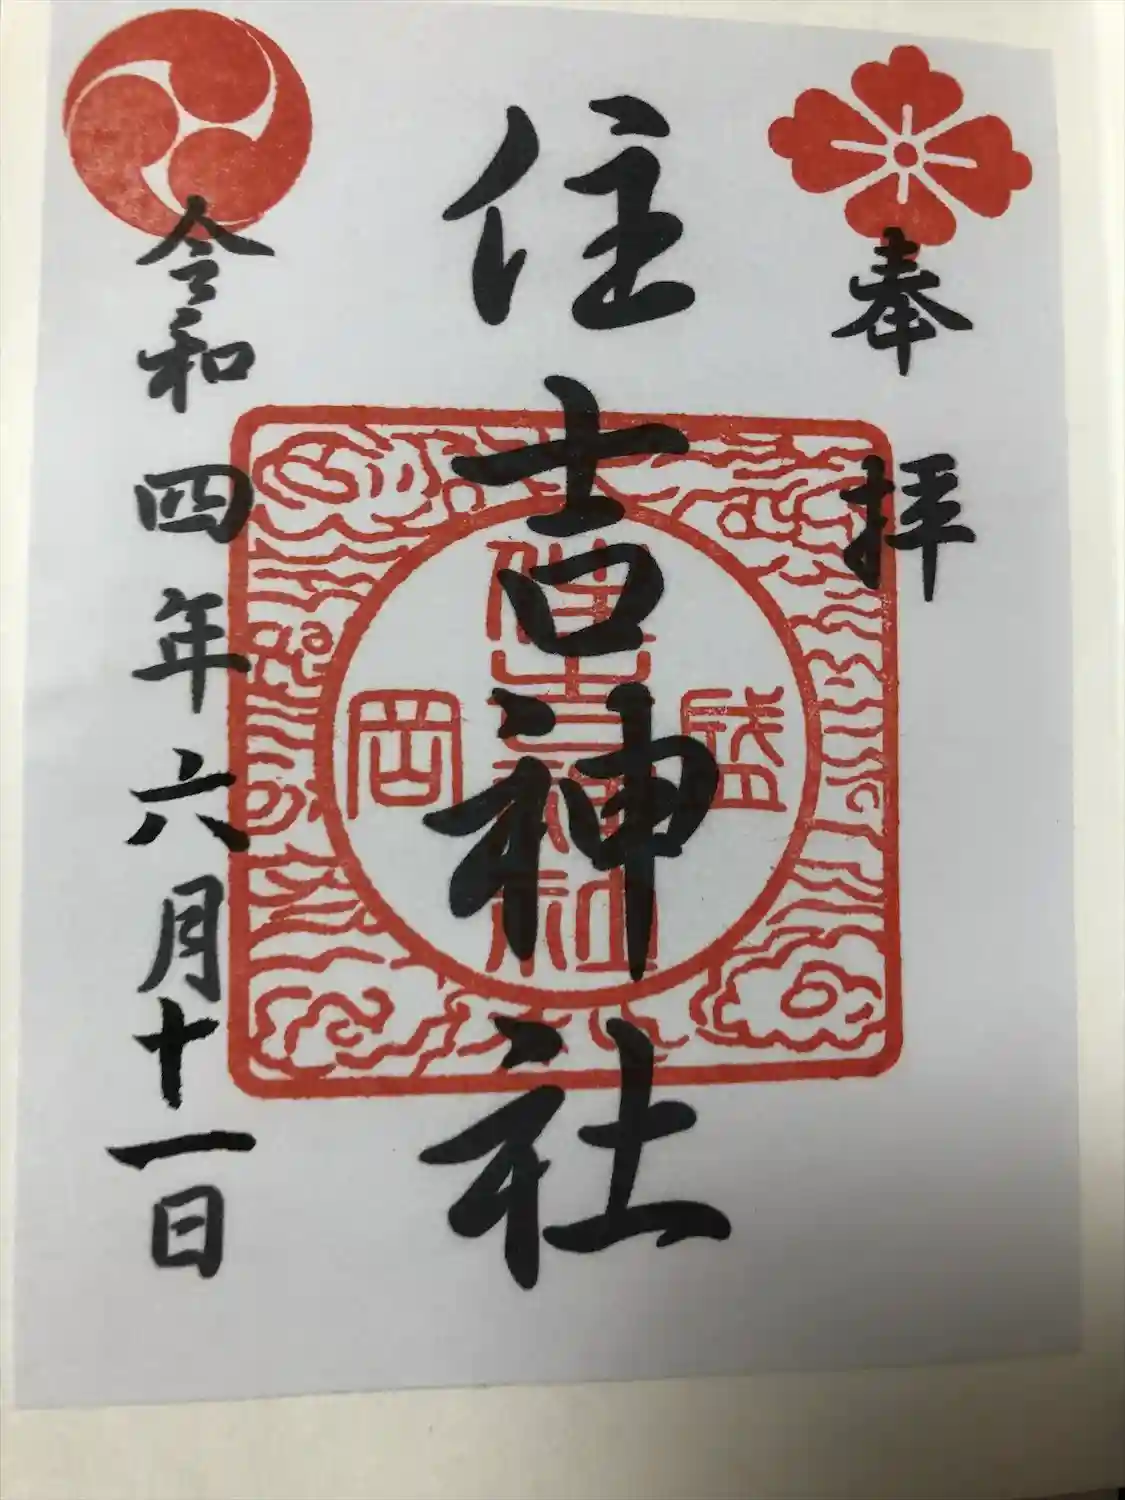 奉拝
住吉神社
盛
住吉神社
岡
令和四年六月十一日